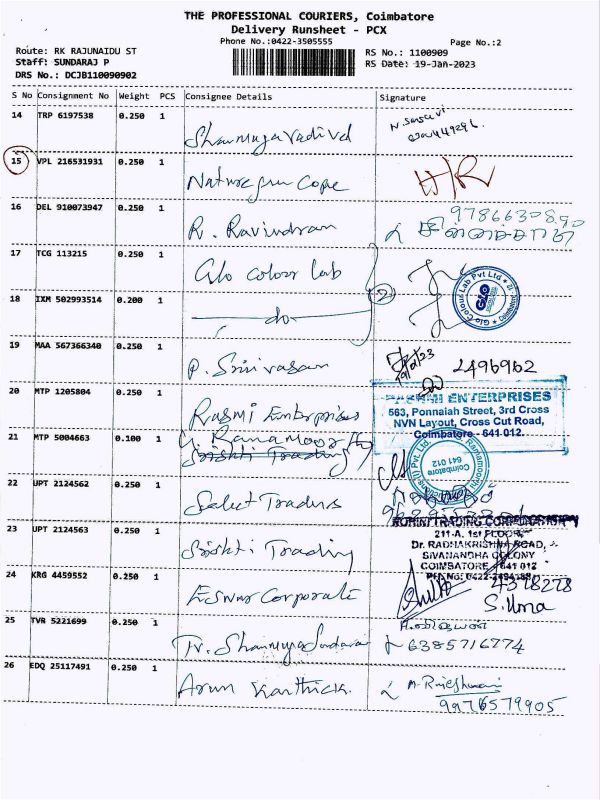 THE PROFESSIONAL COURIERS, Coimbatore
Delivery Runsheet - PCX
Phone No.:0422-3505555
Page No.:2
Route: RK RAJUNAIDU ST
RS No.: 1100909
Staff: SUNDARAJ P
RS Date: 19-Jan-2023
DRS No.: DCJB110090902
S No Consignment No Weight PCS Consignee Details Signature
14 TRP 6197538 0.250 1
Shanmugavadivel
15 VPL 216531931 0.250 1
Cope H/R
16 DEL 910073947 0.250 1
R. Ravindran
9786630890
17 TCG 113215 0.250 1
Glo Colour Lab
Glo Colour Lab Pvt Ltd
GLO
Coimbatore
18 IXM 502993514 0.200 1
do
2
19 MAA 567366340 0.250 1
P. Srinivasan
19/01/23
2496962
20 MTP 1205804 0.250 1
Rasmi Enterprises
RASHMI ENTERPRISES
563, Ponnaiah Street, 3rd Cross
NVN Layout, Cross Cut Road,
Coimbatore - 641 012.
21 MTP 5004663 0.100 1
Srishti Trading
Coimbatore
641 012
22 UPT 2124562 0.250 1
Select Traders
23 UPT 2124563 0.250 1
Srishti Trading
TRADING CORPORATION
211-A, 1st FLOOR,
Dr. RADHAKRISHNA ROAD,
SIVANANDHA COLONY
COIMBATORE 641 012
24 KRG 4459552 0.250 1
Eswar Corporate
4378278
S. Uma
25 TVR 5221699 0.250 1
Tr. Shanmugasundara
6385716774
26 EDQ 25117491 0.250 1
Arun Karthick.
A. Rajeshwari
9976579905